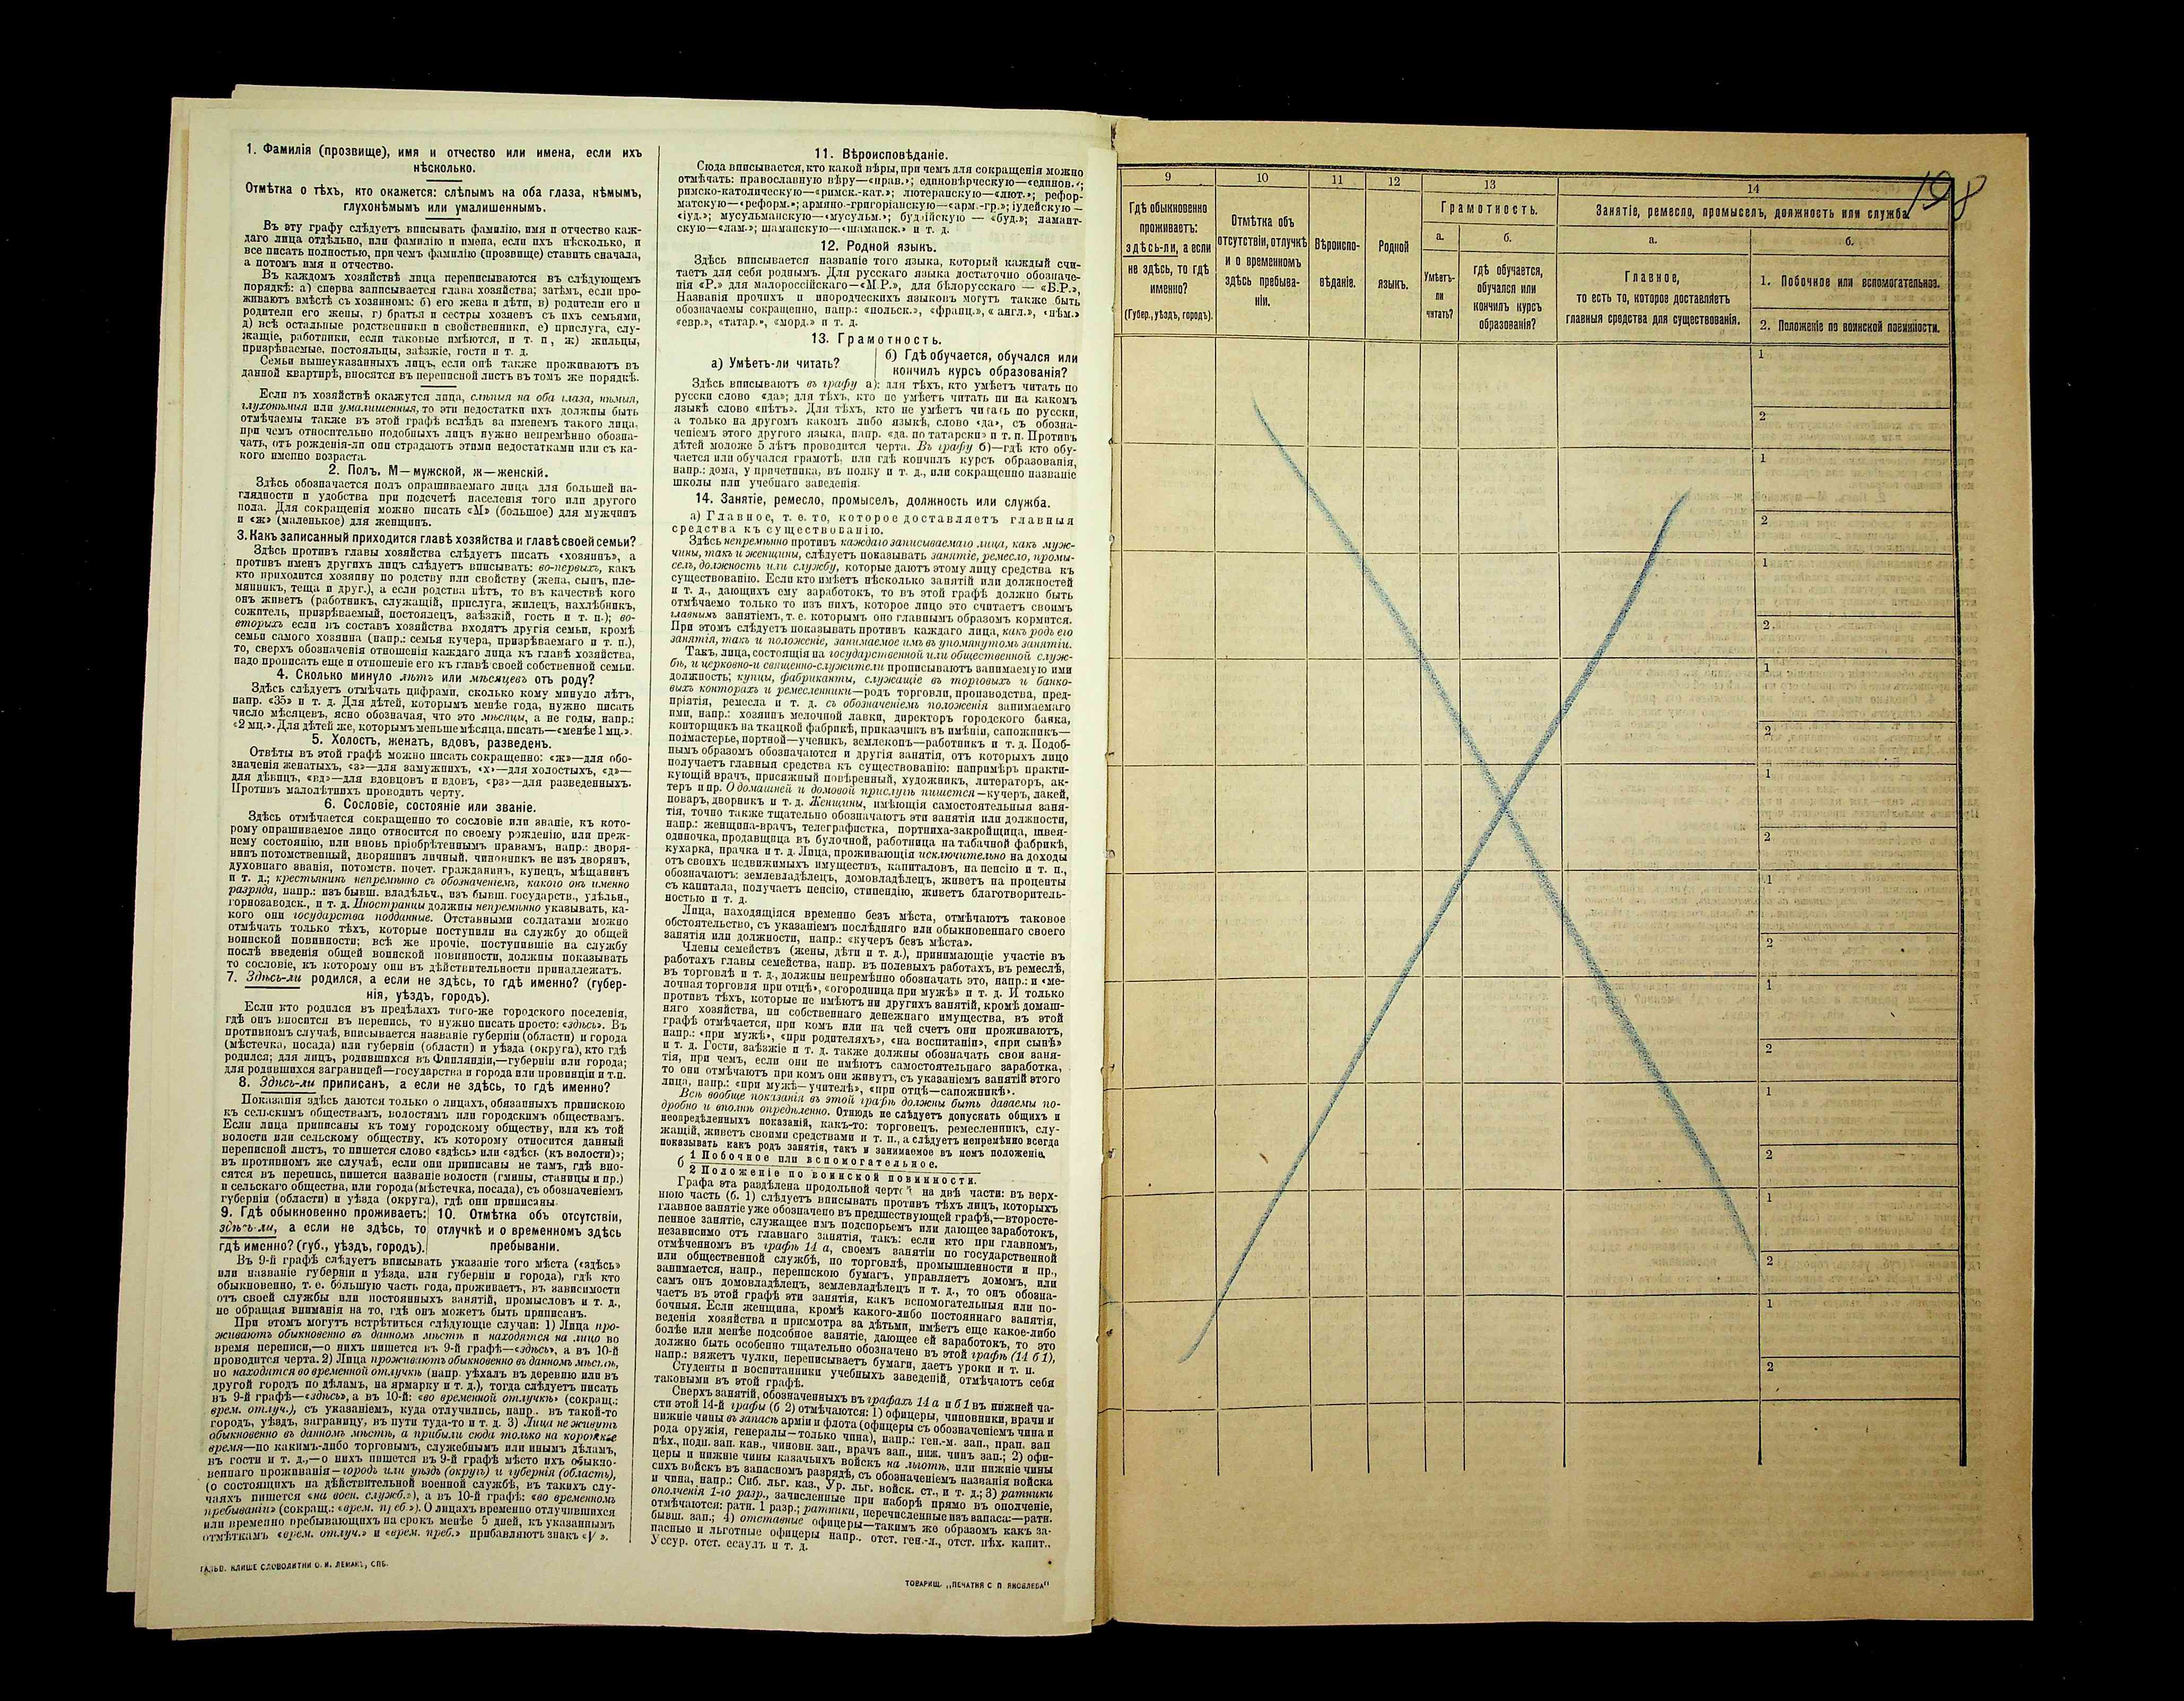 1. Фамилія (прозвище), имя и отчество или имена, если ихъ
нѣсколько.
Отмѣтка о тѣхъ, кто окажется: слѣпымъ на оба глаза, нѣмымъ,
глухонѣмымъ или умалишеннымъ.
Въ эту графу слѣдуетъ вписывать фамилію, имя и отчество каж-
даго лица отдѣльно, или фамилію и имена, если ихъ нѣсколько, и
все писать полностью, при чемъ фамилію (прозвище) ставить сначала,
а потомъ имя и отчество.
Въ каждомъ хозяйствѣ лица переписываются въ слѣдующемъ
порядкѣ: а) сперва записывается глава хозяйства; затѣмъ, если про-
живаютъ вмѣстѣ съ хозяиномъ: б) его жена и дѣти, в) родители его и
родители его жены, г) братья и сестры хозяевъ съ ихъ семьями,
д) всѣ остальные родственники и свойственники, е) прислуга, слу-
жащіе, работники, если таковые имѣются, и т. п, ж) жильцы,
призрѣваемые, постояльцы, заѣзжіе, гости и т. д.
Семьи вышеуказанныхъ лицъ, если онѣ также проживаютъ въ
данной квартирѣ, вносятся въ переписной листъ въ томъ же порядкѣ.
Если въ хозяйствѣ окажутся лица, слѣпыя на оба глаза, нѣмыя,
глухонѣмыя или умалишенныя, то эти недостатки ихъ должны быть
отмѣчаемы также въ этой графѣ вслѣдъ за именемъ такого лица,
при чемъ относительно подобныхъ лицъ нужно непремѣнно обозна-
чать, отъ рожденія-ли они страдаютъ этими недостатками или съ ка-
кого именно возраста.
2. Полъ, М—мужской, ж—женскій.
Здѣсь обозначается полъ опрашиваемаго лица для большей на-
глядности и удобства при подсчетѣ населенія того или другого
пола. Для сокращенія можно писать «М» (большое) для мужчинъ
и «ж» (маленькое) для женщинъ.
3. Какъ записанный приходится главѣ хозяйства и главѣ своей семьи?
Здѣсь противъ главы хозяйства слѣдуетъ писать «хозяинъ», а
противъ именъ другихъ лицъ слѣдуетъ вписывать: во-первыхъ, какъ
кто приходится хозяину по родству или свойству (жена, сынъ, пле-
мянникъ, теща и друг.), а если родства нѣтъ, то въ качествѣ кого
онъ живетъ (работникъ, служащій, прислуга, жилецъ, нахлѣбникъ,
сожитель, призрѣваемый, постоялецъ, заѣзжій, гость и т. п.); во-
вторыхъ если въ составъ хозяйства входятъ другія семьи, кромѣ
семьи самого хозяина (напр.: семья кучера, призрѣваемаго и т. п.),
то, сверхъ обозначенія отношенія каждаго лица къ главѣ хозяйства,
надо прописать еще и отношеніе его къ главѣ своей собственной семьи.
4. Сколько минуло лѣтъ или мѣсяцевъ отъ роду?
Здѣсь слѣдуетъ отмѣчать цифрами, сколько кому минуло лѣтъ,
напр. «35» и т. д. Для дѣтей, которымъ менѣе года, нужно писать
число мѣсяцевъ, ясно обозначая, что это мѣсяцы, а не годы, напр.:
«2 мц.». Для дѣтей же, которымъ меньше мѣсяца, писать—«менѣе 1 мц.».
5. Холостъ, женатъ, вдовъ, разведенъ.
Отвѣты въ этой графѣ можно писать сокращенно: «ж»—для обо-
значенія женатыхъ, «з»—для замужнихъ, «х»—для холостыхъ, «д»—
для дѣвицъ, «вд»—для вдовцовъ и вдовъ, «рз»—для разведенныхъ.
Противъ малолѣтнихъ проводить черту.
6. Сословіе, состояніе или званіе.
Здѣсь отмѣчается сокращенно то сословіе или званіе, къ кото-
рому опрашиваемое лицо относится по своему рожденію, или преж-
нему состоянію, или вновь пріобрѣтеннымъ правамъ, напр.: дворя-
нинъ потомственный, дворянинъ личный, чиновникъ не изъ дворянъ,
духовнаго званія, потомств. почет. гражданинъ, купецъ, мѣщанинъ
и т. д.; крестьянинъ непремѣнно съ обозначеніемъ, какого онъ именно
разряда, напр.: изъ бывш. владѣльч., изъ бывш. государств., удѣльн.,
горнозаводск., и т. д. Иностранцы должны непремѣнно указывать, ка-
кого они государства подданные. Отставными солдатами можно
отмѣчать только тѣхъ, которые поступили на службу до общей
воинской повинности; всѣ же прочіе, поступившіе на службу
послѣ введенія общей воинской повинности, должны показывать
то сословіе, къ которому они въ дѣйствительности принадлежатъ.
7. Здѣсь-ли родился, а если не здѣсь, то гдѣ именно? (губер-
нія, уѣздъ, городъ).
Если кто родился въ предѣлахъ того-же городского поселенія,
гдѣ онъ вносится въ перепись, то нужно писать просто: «здѣсь». Въ
противномъ случаѣ, вписывается названіе губерніи (области) и города
(мѣстечка, посада) или губерніи (области) и уѣзда (округа), кто гдѣ
родился; для лицъ, родившихся въ Финляндіи,—губерніи или города;
для родившихся заграницей—государства и города или провинціи и т.п.
8. Здѣсь-ли приписанъ, а если не здѣсь, то гдѣ именно?
Показанія здѣсь даются только о лицахъ, обязанныхъ припискою
къ сельскимъ обществамъ, волостямъ или городскимъ обществамъ.
Если лица приписаны къ тому городскому обществу, или къ той
волости или сельскому обществу, къ которому относится данный
переписной листъ, то пишется слово «здѣсь» или «здѣсь (къ волости)»;
въ противномъ же случаѣ, если они приписаны не тамъ, гдѣ вно-
сятся въ перепись, пишется названіе волости (гмины, станицы и пр.)
и сельскаго общества, или города (мѣстечка, посада), съ обозначеніемъ
губерніи (области) и уѣзда (округа), гдѣ они приписаны.
9. Гдѣ обыкновенно проживаетъ:
здѣсь-ли, а если не здѣсь, то
гдѣ именно? (губ., уѣздъ, городъ).
10. Отмѣтка объ отсутствіи,
отлучкѣ и о временномъ здѣсь
пребываніи.
Въ 9-й графѣ слѣдуетъ вписывать указаніе того мѣста («здѣсь»
или названіе губерніи и уѣзда, или губерніи и города), гдѣ кто
обыкновенно, т. е. бо́льшую часть года, проживаетъ, въ зависимости
отъ своей службы или постоянныхъ занятій, промысловъ и т. д.,
не обращая вниманія на то, гдѣ онъ можетъ быть приписанъ.
При этомъ могутъ встрѣтиться слѣдующіе случаи: 1) Лица про-
живаютъ обыкновенно въ данномъ мѣстѣ и находятся на лицо во
время переписи,—о нихъ пишется въ 9-й графѣ—«здѣсь», а въ 10-й
проводится черта. 2) Лица проживаютъ обыкновенно въ данномъ мѣстѣ,
но находятся во временной отлучкѣ (напр. уѣхалъ въ деревню или въ
другой городъ по дѣламъ, на ярмарку и т. д.), тогда слѣдуетъ писать
въ 9-й графѣ—«здѣсь», а въ 10-й: «во временной отлучкѣ» (сокращ.:
врем. отлуч.), съ указаніемъ, куда отлучились, напр.. въ такой-то
городъ, уѣздъ, заграницу, въ пути туда-то и т. д. 3) Лица не живутъ
обыкновенно въ данномъ мѣстѣ, а прибыли сюда только на короткое
время—по какимъ-либо торговымъ, служебнымъ или инымъ дѣламъ,
въ гости и т. д.,—о нихъ пишется въ 9-й графѣ мѣсто ихъ обыкно-
веннаго проживанія—городъ или уѣздъ (округъ) и губернія (область),
(о состоящихъ на дѣйствительной военной службѣ, въ такихъ слу-
чаяхъ пишется «на воен. служб.»), а въ 10-й графѣ: «во временномъ
пребываніи» (сокращ.: «врем. преб.»). О лицахъ временно отлучившихся
или временно пребывающихъ на срокъ менѣе 5 дней, къ указаннымъ
отмѣткамъ «врем. отлуч.» и «врем. преб.» прибавляютъ знакъ «V».
ГАЛЬВ. КЛИШЕ СЛОВОЛИТНИ О. И. ЛЕМАНЪ, СПБ.
11. Вѣроисповѣданіе.
Сюда вписывается, кто какой вѣры, при чемъ для сокращенія можно
отмѣчать: православную вѣру—«прав.»; единовѣрческую—«единов.»;
римско-католическую—«римск.-кат.»; лютеранскую—«лют.»; рефор-
матскую—«реформ.»; армяно-григоріанскую—«арм.-гр.»; іудейскую—
«іуд.»; мусульманскую—«мусульм.»; буддійскую — «буд.»; ламаит-
скую—«лам.»; шаманскую—«шаманск.» и т. д.
12. Родной языкъ.
Здѣсь вписывается названіе того языка, который каждый счи-
таетъ для себя роднымъ. Для русскаго языка достаточно обозначе-
нія «Р.» для малороссійскаго—«М.Р.», для бѣлорусскаго — «Б.Р.»,
Названія прочихъ и инородческихъ языковъ могутъ также быть
обозначаемы сокращенно, напр.: «польск.», «франц.», «англ.», «нѣм.»
«евр.», «татар.», «морд.» и т. д.
13. Грамотность.
а) Умѣетъ-ли читать?
б) Гдѣ обучается, обучался или
кончилъ курсъ образованія?
Здѣсь вписываютъ въ графу а): для тѣхъ, кто умѣетъ читать по
русски слово «да»; для тѣхъ, кто не умѣетъ читать ни на какомъ
языкѣ слово «нѣтъ». Для тѣхъ, кто не умѣетъ читать по русски,
а только на другомъ какомъ либо языкѣ, слово «да», съ обозна-
ченіемъ этого другого языка, напр. «да. по татарски» и т. п. Противъ
дѣтей моложе 5 лѣтъ проводится черта. Въ графу б)—гдѣ кто обу-
чается или обучался грамотѣ, или гдѣ кончилъ курсъ образованія,
напр.: дома, у причетника, въ полку и т. д., или сокращенно названіе
школы или учебнаго заведенія.
14. Занятіе, ремесло, промыселъ, должность или служба.
а) Главное, т. е. то, которое доставляетъ главныя
средства къ существованію.
Здѣсь непремѣнно противъ каждаго записываемаго лица, какъ муж-
чины, такъ и женщины, слѣдуетъ показывать занятіе, ремесло, промы-
селъ, должность или службу, которые даютъ этому лицу средства къ
существованію. Если кто имѣетъ нѣсколько занятій или должностей
и т. д., дающихъ ему заработокъ, то въ этой графѣ должно быть
отмѣчаемо только то изъ нихъ, которое лицо это считаетъ своимъ
главнымъ занятіемъ, т. е. которымъ оно главнымъ образомъ кормится.
При этомъ слѣдуетъ показывать противъ каждаго лица, какъ родъ его
занятія, такъ и положеніе, занимаемое имъ въ упомянутомъ занятіи.
Такъ, лица, состоящія на государственной или общественной служ-
бѣ, и церковно-и священно-служители прописываютъ занимаемую ими
должность; купцы, фабриканты, служащіе въ торговыхъ и банко-
выхъ конторахъ и ремесленники—родъ торговли, производства, пред-
пріятія, ремесла и т. д. съ обозначеніемъ положенія занимаемаго
ими, напр.: хозяинъ мелочной лавки, директоръ городского банка,
конторщикъ на ткацкой фабрикѣ, приказчикъ въ имѣніи, сапожникъ—
подмастерье, портной—ученикъ, землекопъ—работникъ и т. д. Подоб-
нымъ образомъ обозначаются и другія занятія, отъ которыхъ лицо
получаетъ главныя средства къ существованію: напримѣръ практи-
кующій врачъ, присяжный повѣренный, художникъ, литераторъ, ак-
теръ и пр. О домашней и домовой прислугѣ пишется—кучеръ, лакей,
поваръ, дворникъ и т. д. Женщины, имѣющія самостоятельныя заня-
тія, точно также тщательно обозначаютъ эти занятія или должности,
напр.: женщина-врачъ, телеграфистка, портниха-закройщица, швея-
одиночка, продавщица въ булочной, работница на табачной фабрикѣ,
кухарка, прачка и т. д. Лица, проживающія исключительно на доходы
отъ своихъ недвижимыхъ имуществъ, капиталовъ, на пенсію и т. п.,
обозначаютъ: землевладѣлецъ, домовладѣлецъ, живетъ на проценты
съ капитала, получаетъ пенсію, стипендію, живетъ благотворитель-
ностью и т. д.
Лица, находящіяся временно безъ мѣста, отмѣчаютъ таковое
обстоятельство, съ указаніемъ послѣдняго или обыкновеннаго своего
занятія или должности, напр.: «кучеръ безъ мѣста».
Члены семействъ (жены, дѣти и т. д.), принимающіе участіе въ
работахъ главы семейства, напр. въ полевыхъ работахъ, въ ремеслѣ,
въ торговлѣ и т. д., должны непремѣнно обозначать это, напр.: и «ме-
лочная торговля при отцѣ», «огородница при мужѣ» и т. д. И только
противъ тѣхъ, которые не имѣютъ ни другихъ занятій, кромѣ домаш-
няго хозяйства, ни собственнаго денежнаго имущества, въ этой
графѣ отмѣчается, при комъ или на чей счетъ они проживаютъ,
напр.: «при мужѣ», «при родителяхъ», «на воспитаніи», «при сынѣ»
и т. д. Гости, заѣзжіе и т. д. также должны обозначать свои заня-
тія, при чемъ, если они не имѣютъ самостоятельнаго заработка,
то они отмѣчаютъ при комъ они живутъ, съ указаніемъ занятій этого
лица, напр.: «при мужѣ—учителѣ», «при отцѣ—сапожникѣ».
Всѣ вообще показанія въ этой графѣ должны быть даваемы по-
дробно и вполнѣ опредѣленно. Отнюдь не слѣдуетъ допускать общихъ и
неопредѣленныхъ показаній, какъ-то: торговецъ, ремесленникъ, слу-
жащій, живетъ своими средствами и т. п., а слѣдуетъ непремѣнно всегда
показывать какъ родъ занятія, такъ и занимаемое въ немъ положеніе.
б 1 Побочное или вспомогательное.
2 Положеніе по воинской повинности.
Графа эта раздѣлена продольной чертой на двѣ части: въ верх-
нюю часть (б. 1) слѣдуетъ вписывать противъ тѣхъ лицъ, которыхъ
главное занятіе уже обозначено въ предшествующей графѣ,—второсте-
пенное занятіе, служащее имъ подспорьемъ или дающее заработокъ,
независимо отъ главнаго занятія, такъ: если кто при главномъ,
отмѣченномъ въ графѣ 14 а, своемъ занятіи по государственной
или общественной службѣ, по торговлѣ, промышленности и пр.,
занимается, напр., перепискою бумагъ, управляетъ домомъ, или
самъ онъ домовладѣлецъ, землевладѣлецъ и т. д., то онъ обозна-
чаетъ въ этой графѣ эти занятія, какъ вспомогательныя или по-
бочныя. Если женщина, кромѣ какого-либо постояннаго занятія,
веденія хозяйства и присмотра за дѣтьми, имѣетъ еще какое-либо
болѣе или менѣе подсобное занятіе, дающее ей заработокъ, то это
должно быть особенно тщательно обозначено въ этой графѣ (14 б 1),
напр.: вяжетъ чулки, переписываетъ бумаги, даетъ уроки и т. п.
Студенты и воспитанники учебныхъ заведеній, отмѣчаютъ себя
таковыми въ этой графѣ.
Сверхъ занятій, обозначенныхъ въ графахъ 14 а и б 1 въ нижней ча-
сти этой 14-й графы (б 2) отмѣчаются: 1) офицеры, чиновники, врачи и
нижніе чины въ запасѣ арміи и флота (офицеры съ обозначеніемъ чина и
рода оружія, генералы—только чина), напр.: ген.-м. зап., прап. зап
пѣх., подп. зап. кав., чиновн. зап., врачъ зап., ниж. чинъ зап.; 2) офи-
церы и нижніе чины казачьихъ войскъ на льготѣ, или нижніе чины
сихъ войскъ въ запасномъ разрядѣ, съ обозначеніемъ названія войска
и чина, напр.: Сиб. льг. каз., Ур. льг. войск. ст., и т. д.; 3) ратники
ополченія 1-го разр., зачисленные при наборѣ прямо въ ополченіе,
отмѣчаются: ратн. 1 разр.; ратники, перечисленные изъ запаса:—ратн.
бывш. зап.; 4) отставные офицеры—такимъ же образомъ какъ за-
пасные и льготные офицеры напр.. отст. ген.-л., отст. пѣх. капит..
Уссур. отст. есаулъ и т. д.
ТОВАРИЩ. „ПЕЧАТНЯ С П ЯКОВЛЕВА"
198
9
10
11
12
13
14
Гдѣ обыкновенно
проживаетъ:
здѣсь-ли, а если
не здѣсь, то гдѣ
именно?
(Губер., уѣздъ, городъ).
Отмѣтка объ
отсутствіи, отлучкѣ
и о временномъ
здѣсь пребыва-
ніи.
Вѣроиспо-
вѣданіе.
Родной
языкъ.
Грамотность.
а.
Умѣетъ-
ли
читать?
б.
гдѣ обучается,
обучался или
кончилъ курсъ
образованія?
Занятіе, ремесло, промыселъ, должность или служба.
а.
Главное,
то есть то, которое доставляетъ
главныя средства для существованія.
б.
1. Побочное или вспомогательное.
2. Положеніе по воинской повинности.
1
2
1
2
1
2
1
2
1
2
1
2
1
2
1
2
1
2
1
2